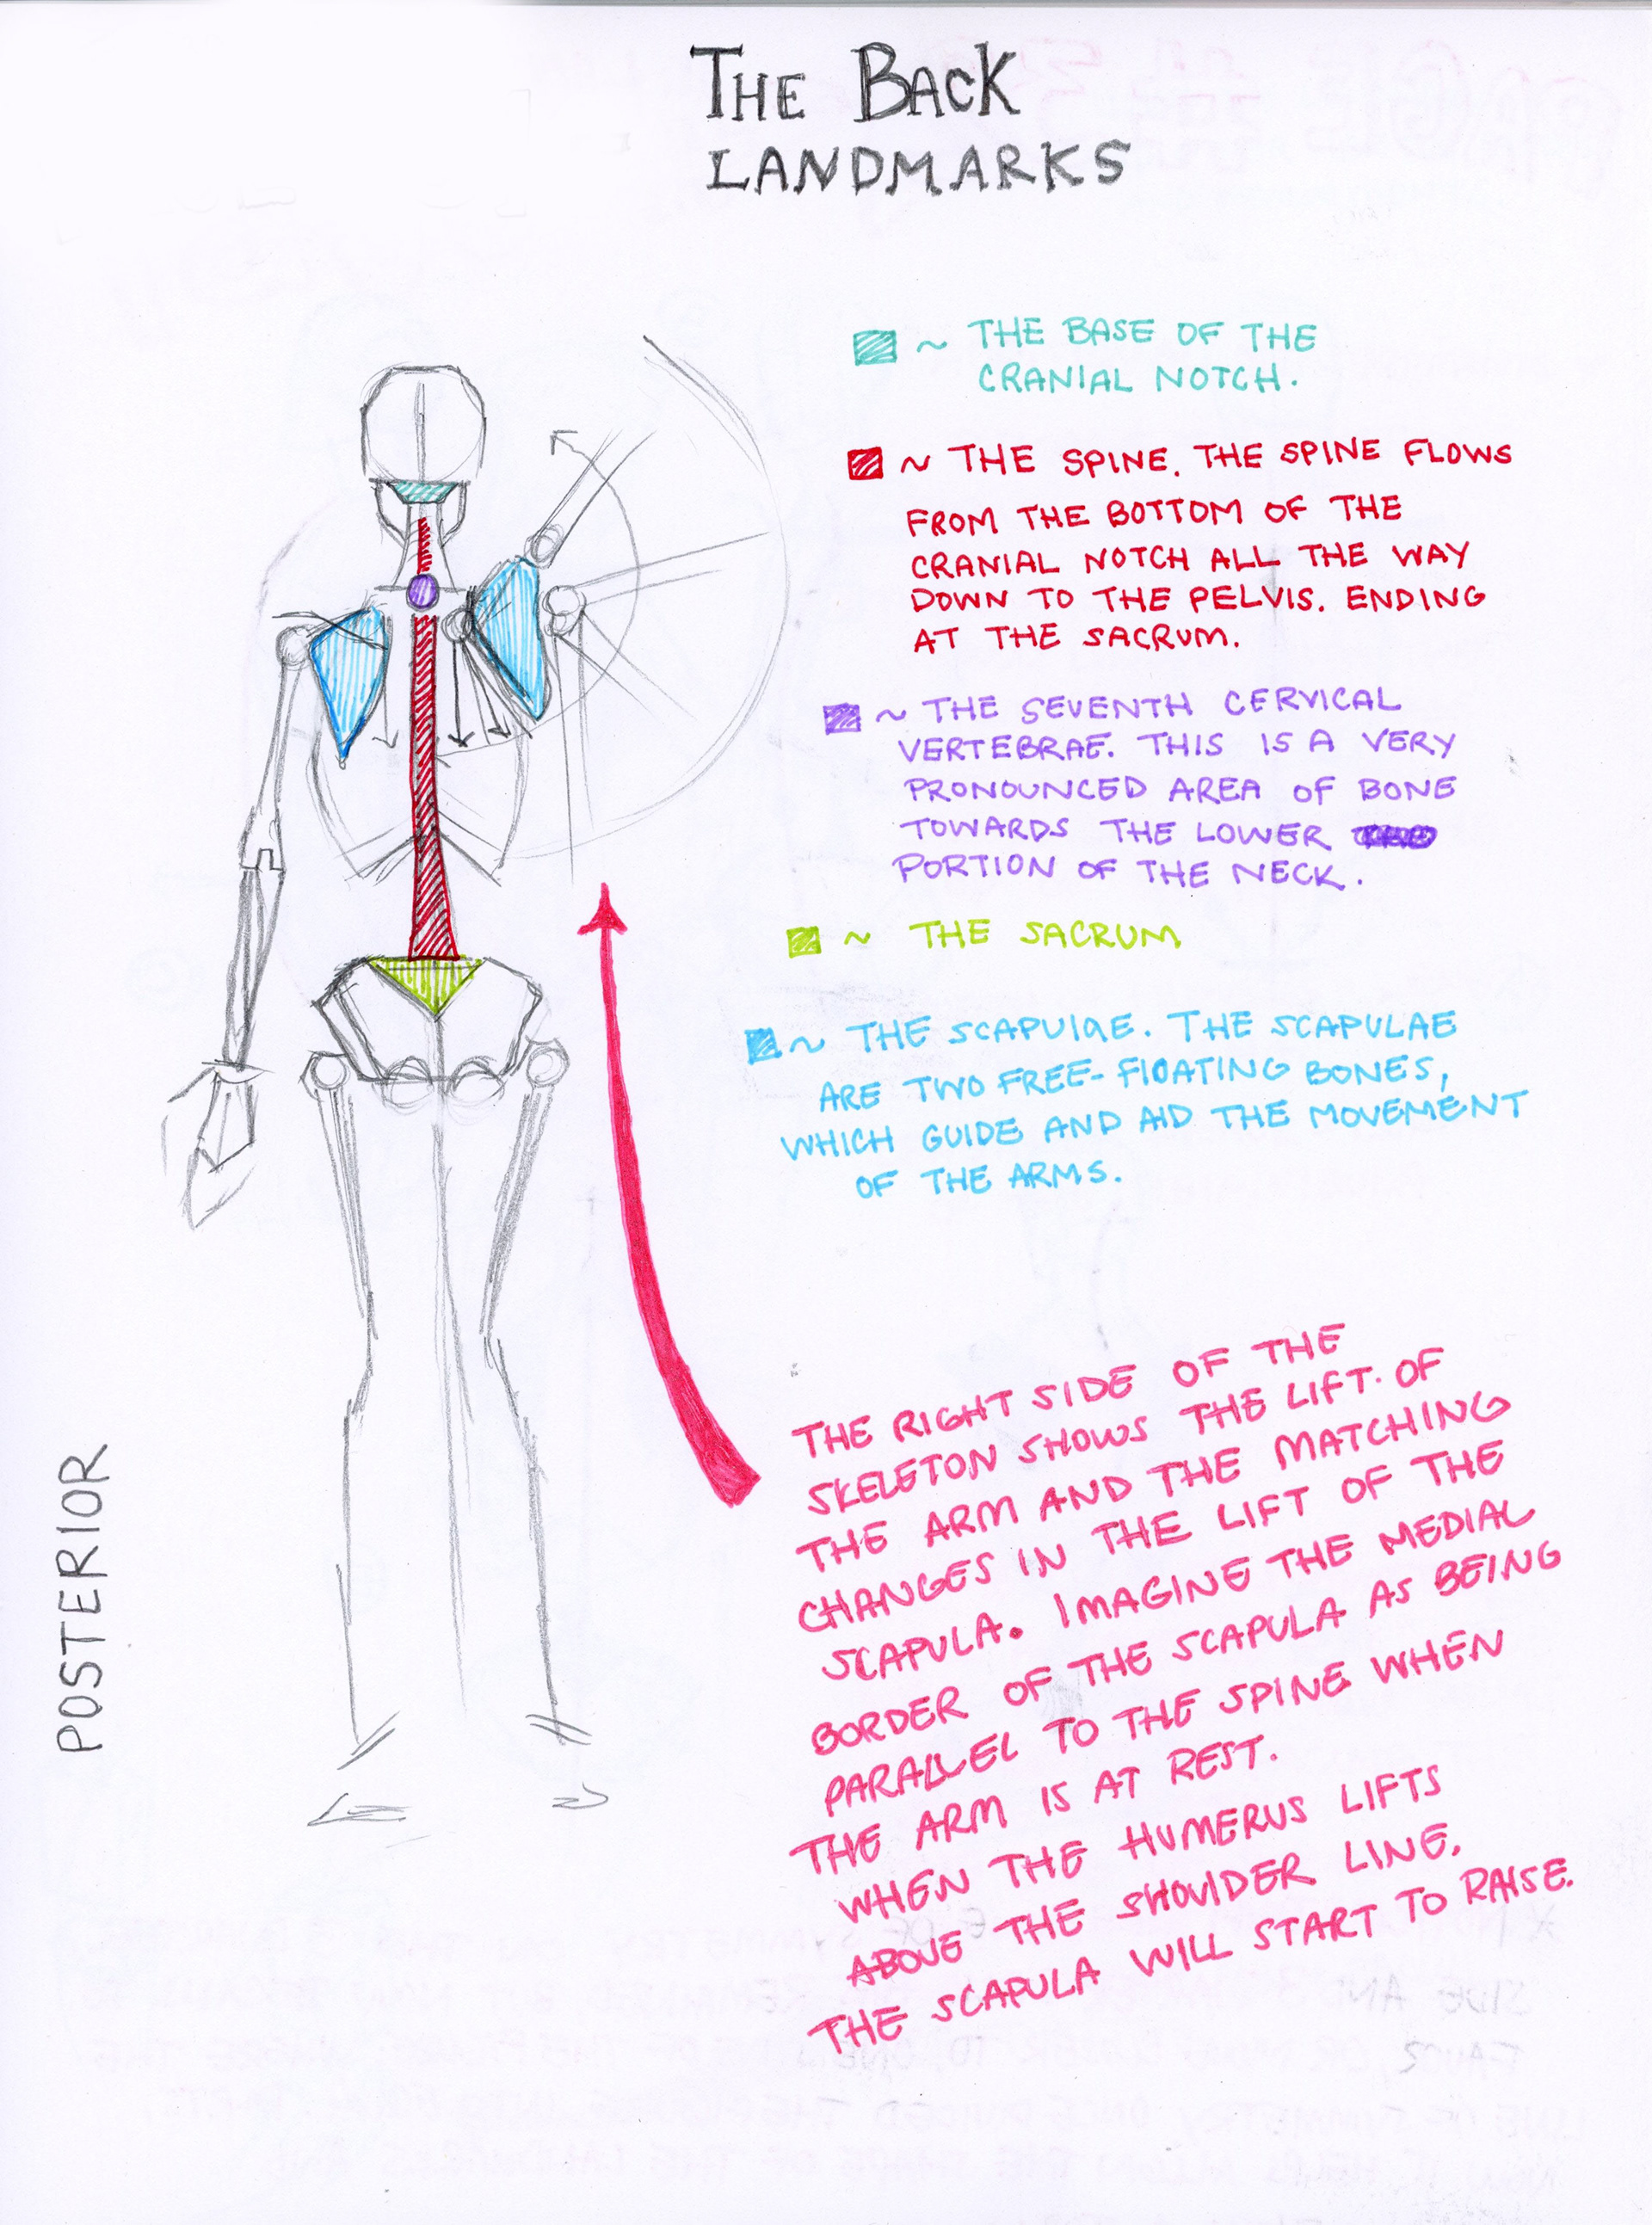 THE BACK
LANDMARKS
~ THE BASE OF THE
CRANIAL NOTCH.
~ THE SPINE. THE SPINE FLOWS
FROM THE BOTTOM OF THE
CRANIAL NOTCH ALL THE WAY
DOWN TO THE PELVIS. ENDING
AT THE SACRUM.
~ THE SEVENTH CERVICAL
VERTEBRAE. THIS IS A VERY
PRONOUNCED AREA OF BONE
TOWARDS THE LOWER
PORTION OF THE NECK.
~ THE SACRUM
~ THE SCAPULAE. THE SCAPULAE
ARE TWO FREE-FLOATING BONES,
WHICH GUIDE AND AID THE MOVEMENT
OF THE ARMS.
THE RIGHT SIDE OF THE
SKELETON SHOWS THE LIFT OF
THE ARM AND THE MATCHING
CHANGES IN THE LIFT OF THE
SCAPULA. IMAGINE THE MEDIAL
BORDER OF THE SCAPULA AS BEING
PARALLEL TO THE SPINE WHEN
THE ARM IS AT REST.
WHEN THE HUMERUS LIFTS
ABOVE THE SHOULDER LINE,
THE SCAPULA WILL START TO RAISE.
POSTERIOR